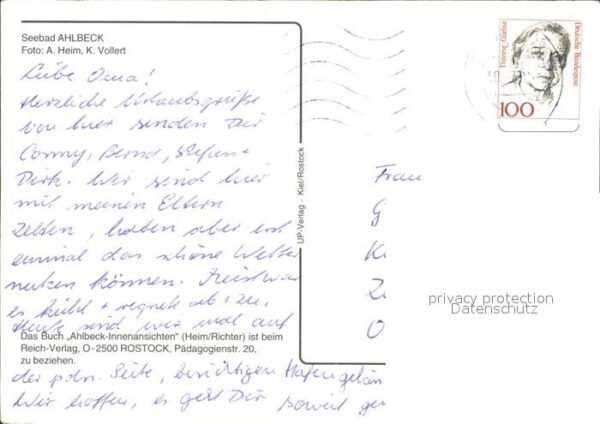 Seebad AHLBECK
Foto: A. Heim, K. Vollert
Liebe Oma!
Herzliche Urlaubsgrüße
von hier senden Dir
Conny, Bernd, Stefan +
Dirk. Wir sind hier
mit meinen Eltern
zelten, haben aber erst
einmal das schöne Wetter
nutzen können. Meist war
es kühl + regnete ab + zu.
Heute sind wir mal auf
Das Buch „Ahlbeck-Innenansichten" (Heim/Richter) ist beim
Reich-Verlag, O-2500 ROSTOCK, Pädagogienstr. 20,
zu beziehen.
der poln. Seite, besichtigen Hafengelän
Wir hoffen, es geht Dir soweit gu
UP-Verlag Kiel/Rostock
Therese Giehse
Deutsche Bundespost
100
Frau
G
K
Z
O
privacy protection
Datenschutz